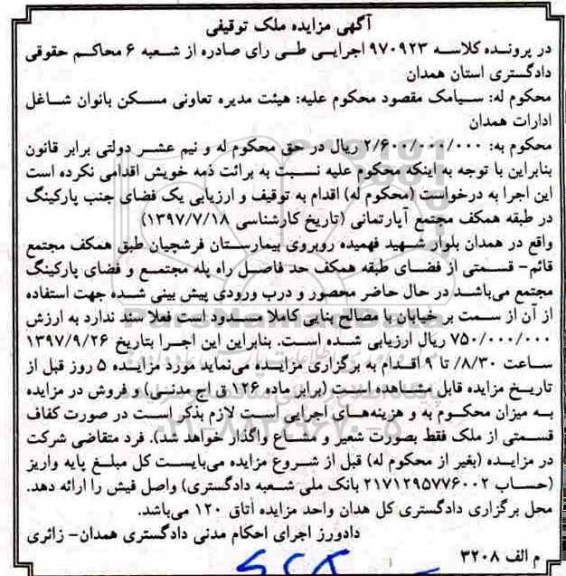 آگهی مزایده ملک توقیفی
در پرونده کلاسه ۹۷۰۹۲۳ اجرایی طی رای صادره از شعبه ۶ محاکم حقوقی
دادگستری استان همدان
محکوم له: سیامک مقصود محکوم علیه: هیئت مدیره تعاونی مسکن بانوان شاغل
ادارات همدان
محکوم به: ۲/۶۰۰/۰۰۰/۰۰۰ ریال در حق محکوم له و نیم عشر دولتی برابر قانون
بنابراین با توجه به اینکه محکوم علیه نسبت به برائت ذمه خویش اقدامی نکرده است
این اجرا به درخواست (محکوم له) اقدام به توقیف و ارزیابی یک فضای جنب پارکینگ
در طبقه همکف مجتمع آپارتمانی (تاریخ کارشناسی ۱۳۹۷/۷/۱۸)
واقع در همدان بلوار شهید فهمیده روبروی بیمارستان فرشچیان طبق همکف مجتمع
قائم- قسمتی از فضای طبقه همکف حد فاصل راه پله مجتمع و فضای پارکینگ
مجتمع می‌باشد در حال حاضر محصور و درب ورودی پیش بینی شده جهت استفاده
از آن از سمت بر خیابان با مصالح بنایی کاملا مسدود است فعلا سند ندارد به ارزش
۷۵۰/۰۰۰/۰۰۰ ریال ارزیابی شده است. بنابراین این اجرا بتاریخ ۱۳۹۷/۹/۲۶
ساعت ۸/۳۰ تا ۹ اقدام به برگزاری مزایده می‌نماید مورد مزایده ۵ روز قبل از
تاریخ مزایده قابل مشاهده است (برابر ماده ۱۲۶ ق اج مدنی) و فروش در مزایده
به میزان محکوم به و هزینه‌های اجرایی است لازم بذکر است در صورت کفاف
قسمتی از ملک فقط بصورت شعیر و مشاع واگذار خواهد شد). فرد متقاضی شرکت
در مزایده (بغیر از محکوم له) قبل از شروع مزایده می‌بایست کل مبلغ پایه واریز
(حساب ۲۱۷۱۲۹۵۷۷۶۰۰۲ بانک ملی شعبه دادگستری) واصل فیش را ارائه دهد.
محل برگزاری دادگستری کل همدان واحد مزایده اتاق ۱۲۰ می‌باشد.
دادورز اجرای احکام مدنی دادگستری همدان- زائری
م الف ۳۲۰۸